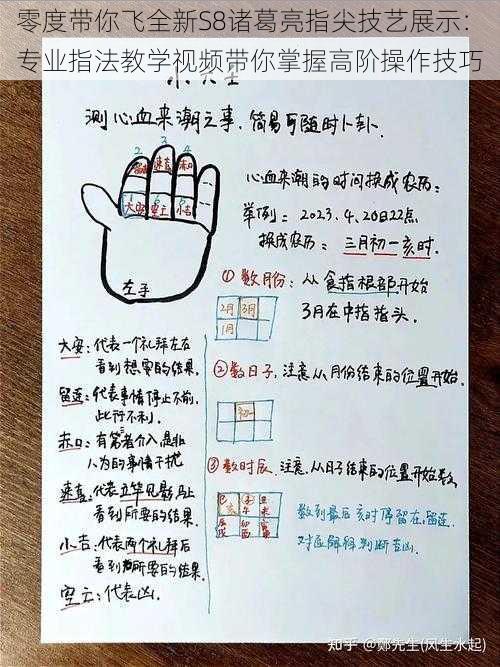 零度带你飞全新S8诸葛亮指尖技艺展示：
专业指法教学视频带你掌握高阶操作技巧
测心血来潮之事，简易可随时卜卦.
2 3 4
留连 速喜 赤口
1 6 5
大安 空亡 小吉
左手
心血来潮的时间换成农历：
举例：2023.4.20日22点
换成农历：三月初一亥时.
①数月份：从食指根部开始
3月在中指指头.
2月 3月
1月
②数日子，注意从月份结束的位置开始.
初一
③数时辰，注意，从日子结束的位置开始数
数到最后亥时停留在，留连
对应解释判断吉凶.
大安：代表一个礼拜左右
看到想要的结果.
留连：代表事情停止不前，
此行不利.
赤口：有第三者介入，是非
人为的事情干扰
速喜：代表立竿见影，马上
看到所要的结果.
小吉：代表两个礼拜后
看到所要的结果.
空亡：代表凶.
知乎 @郑先生(风生水起)